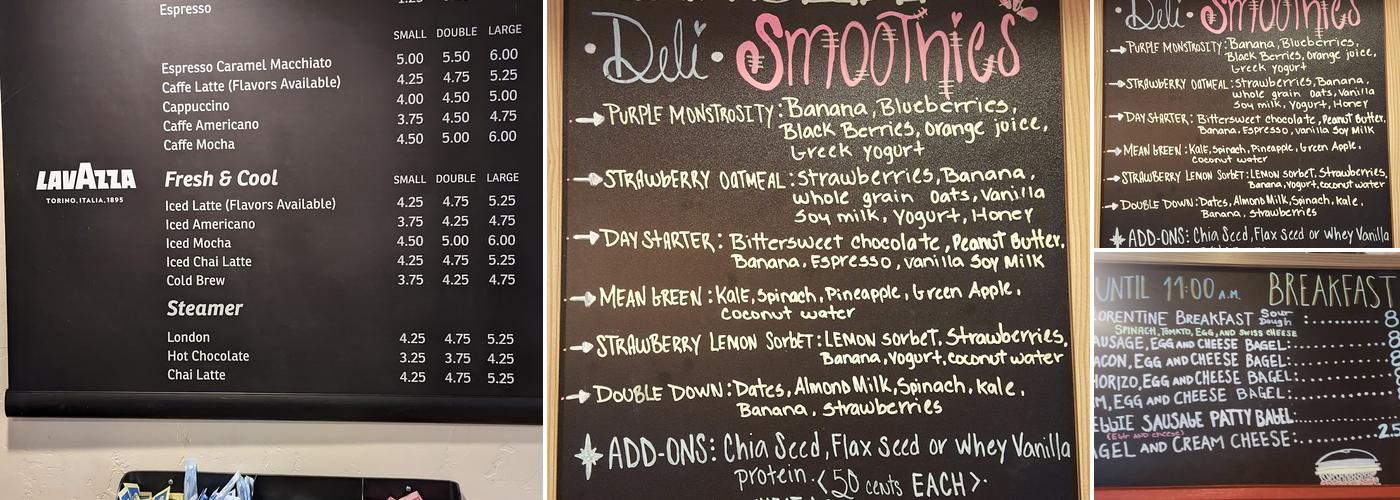 Espresso
SMALL DOUBLE LARGE
Espresso Caramel Macchiato 5.00 5.50 6.00
Caffe Latte (Flavors Available) 4.25 4.75 5.25
Cappuccino 4.00 4.50 5.00
Caffe Americano 3.75 4.50 4.75
Caffe Mocha 4.50 5.00 6.00
LAVAZZA
TORINO, ITALIA, 1895
Fresh & Cool SMALL DOUBLE LARGE
Iced Latte (Flavors Available) 4.25 4.75 5.25
Iced Americano 3.75 4.25 4.75
Iced Mocha 4.50 5.00 6.00
Iced Chai Latte 4.25 4.75 5.25
Cold Brew 3.75 4.25 4.75
Steamer
London 4.25 4.75 5.25
Hot Chocolate 3.25 3.75 4.25
Chai Latte 4.25 4.75 5.25
Deli Smoothies
PURPLE MONSTROSITY: Banana, Blueberries,
Black Berries, Orange juice,
Greek yogurt
STRAWBERRY OATMEAL: Strawberries, Banana,
whole grain Oats, Vanilla
Soy milk, Yogurt, Honey
DAY STARTER: Bittersweet chocolate, Peanut Butter,
Banana, Espresso, vanilla Soy Milk
MEAN GREEN: Kale, Spinach, Pineapple, Green Apple,
coconut water
STRAWBERRY LEMON SORBET: LEMON sorbet, Strawberries,
Banana, Yogurt, coconut water
DOUBLE DOWN: Dates, Almond Milk, Spinach, Kale,
Banana, strawberries
ADD-ONS: Chia Seed, Flax Seed or Whey Vanilla
protein. <50 cents EACH>.
Deli Smoothies
PURPLE MONSTROSITY: Banana, Blueberries,
Black Berries, Orange juice,
Greek yogurt
STRAWBERRY OATMEAL: Strawberries, Banana,
whole grain Oats, Vanilla
Soy milk, Yogurt, Honey
DAY STARTER: Bittersweet chocolate, Peanut Butter,
Banana, Espresso, vanilla Soy Milk
MEAN GREEN: Kale, Spinach, Pineapple, Green Apple,
coconut water
STRAWBERRY LEMON SORBET: LEMON sorbet, Strawberries,
Banana, Yogurt, coconut water
DOUBLE DOWN: Dates, Almond Milk, Spinach, Kale,
Banana, strawberries
ADD-ONS: Chia Seed, Flax Seed or Whey Vanilla
UNTIL 11:00 A.M. BREAKFAST
LORENTINE BREAKFAST Sour Dough :........8
SPINACH, TOMATO, EGG, AND SWISS CHEESE
AUSAGE, EGG AND CHEESE BAGEL:
ACON, EGG AND CHEESE BAGEL:
HORIZO, EGG AND CHEESE BAGEL:
M, EGG AND CHEESE BAGEL:
EGGIE SAUSAGE PATTY BAGEL:
(Egg and cheese)
AGEL AND CREAM CHEESE:........2.5